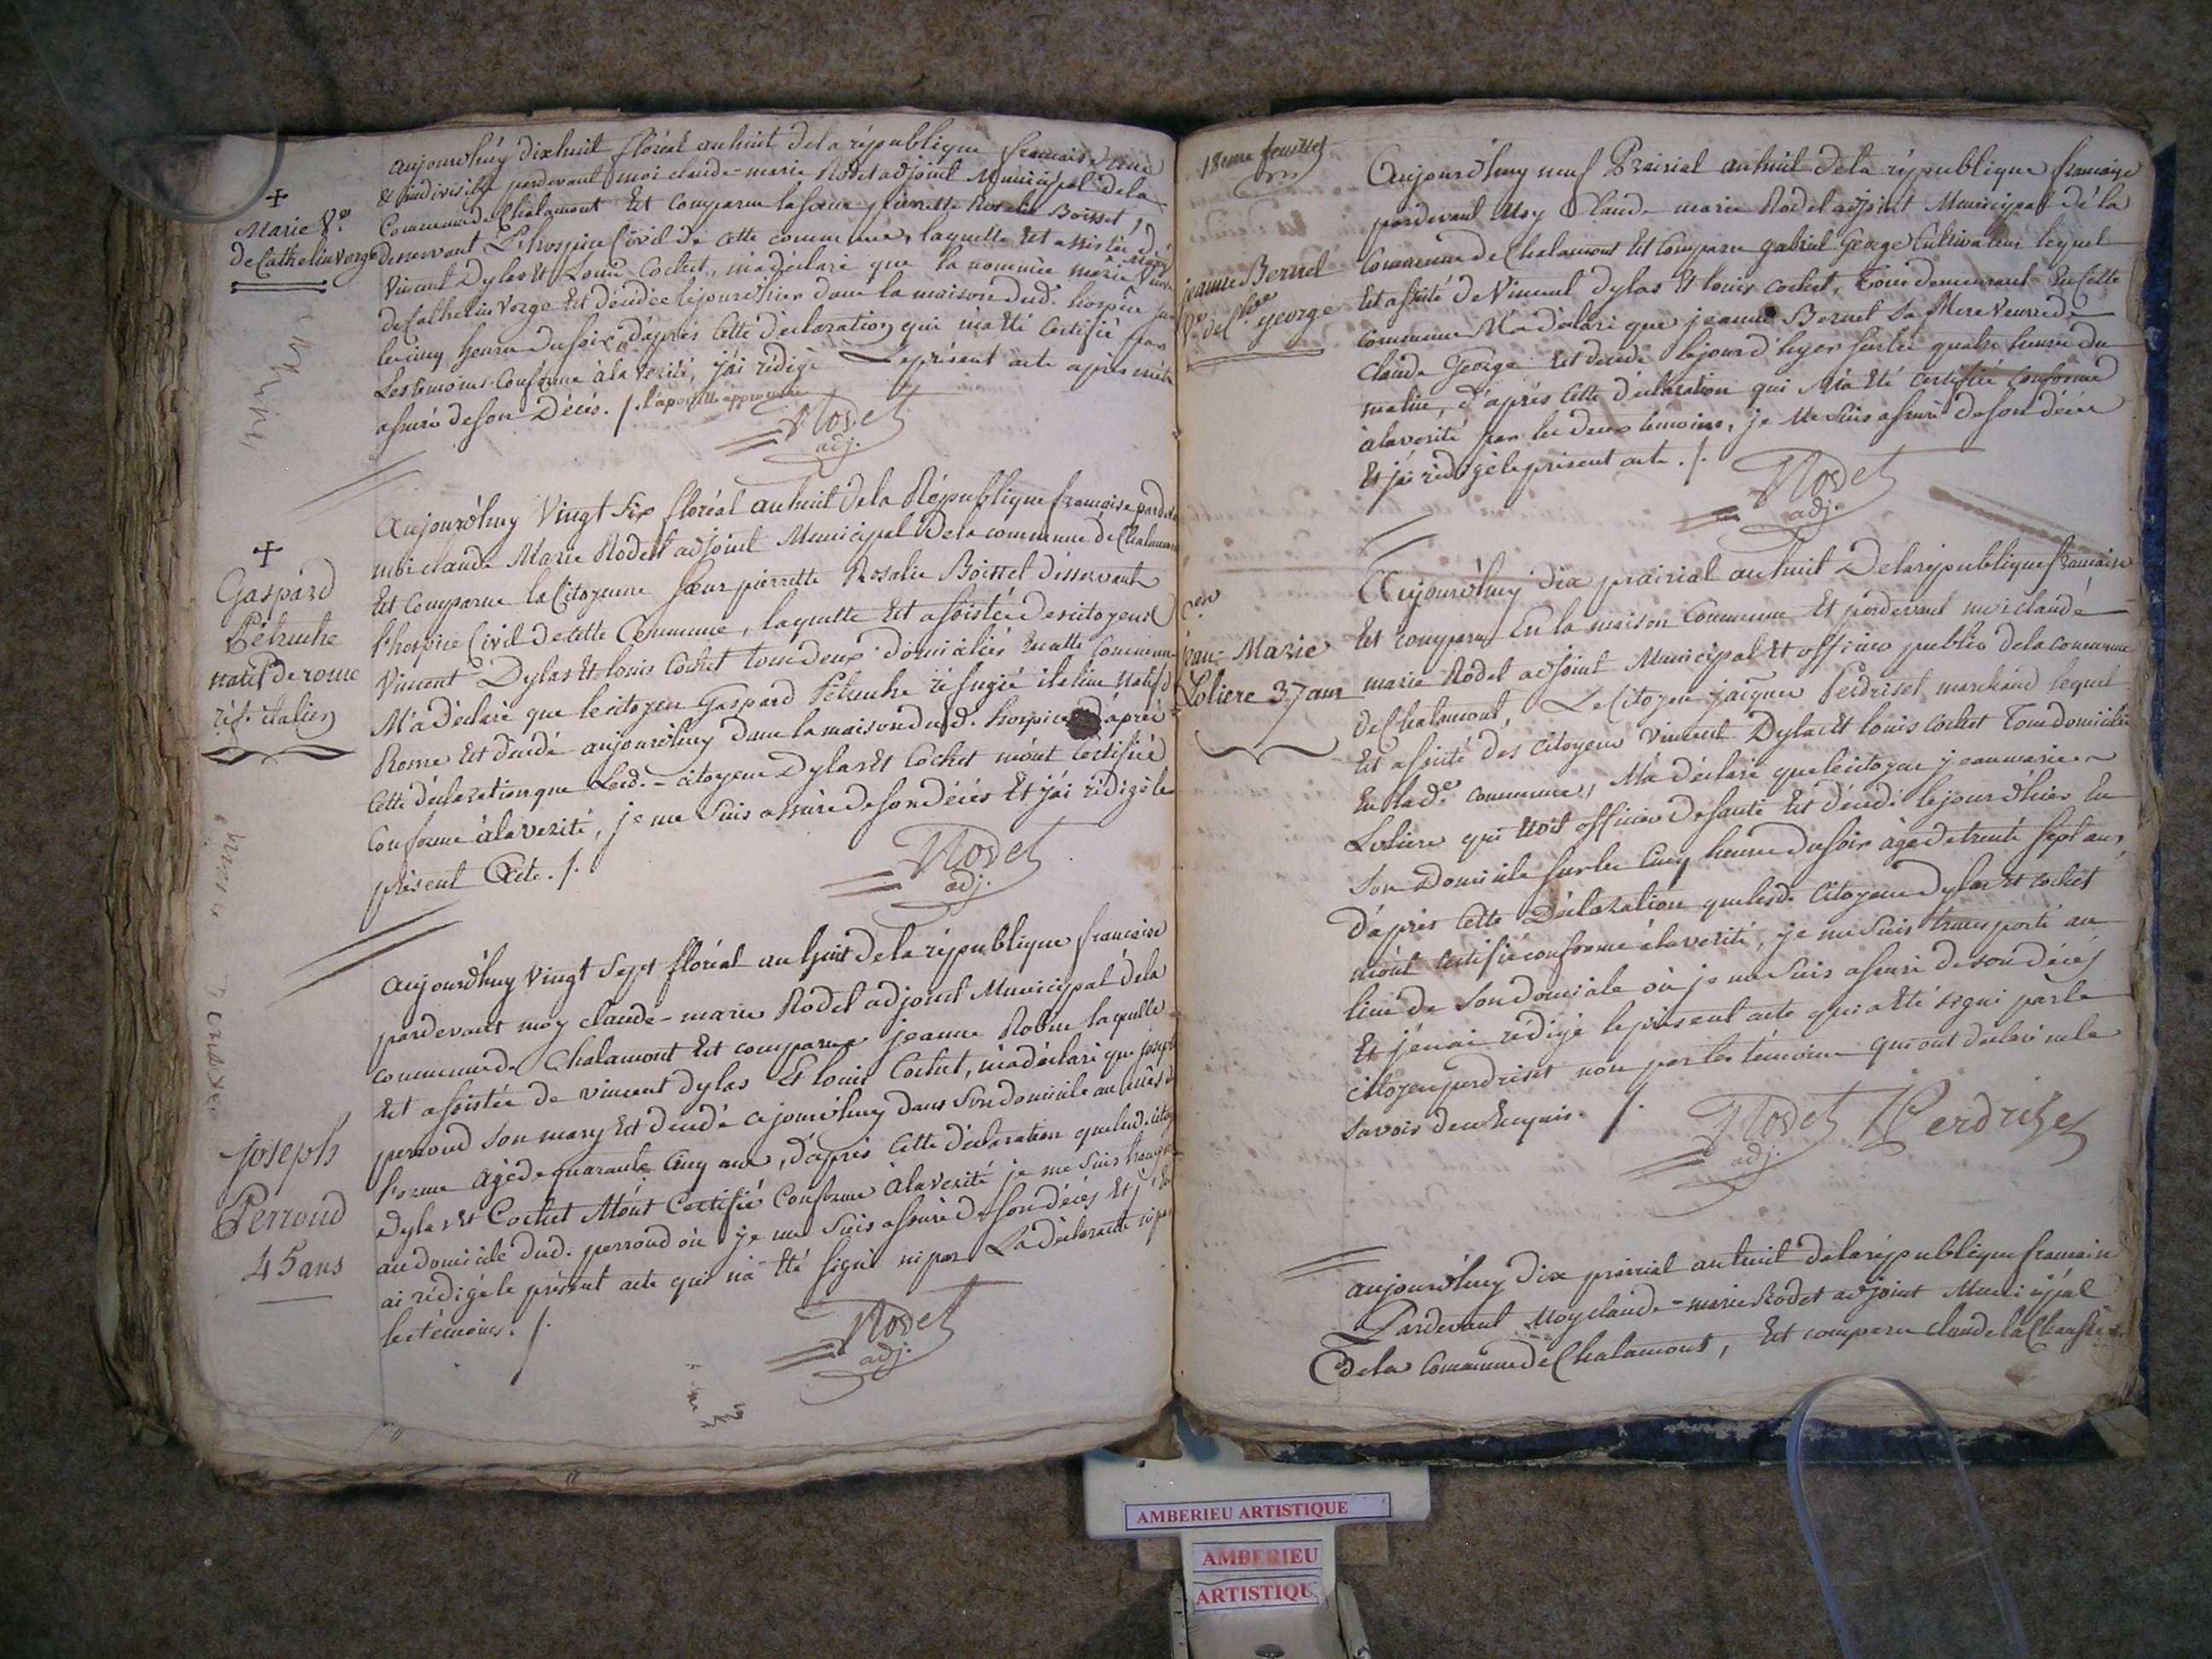 aujourd'huy dixhuit floréal an huit de la république francaise une
& indivisible pardevant moi claude-marie Rodet adjoint Municipal de la
Commune de Chalamont Est Comparue la sœur pierrette Rosalie Boisset,
desservant L'hospice Civil de cette commune, laquelle Est assistée de
Vincent Dylas Et Louis Cochet, m'a déclaré que la nommée marie Veuve
de Cathelin Vorge Est décédée le jourd'hier dans la maison dud. hospice sur
les cinq heures du soir, d'après Cette déclaration qui m'a été Certifié par
Les temoins Conforme à la verité, j'ai rédigé Le présent acte après m'être
assuré de son Décès. /. l'apostille approuvée
Rodet
adj.
+
Marie Ve.
de Cathelin Vorge
Aujourd'huy Vingt Six floréal an huit de la République francoise pardevant
moi claude Marie Rodet adjoint Municipal De la commune de Chalamont
Est Comparue la Citoyenne sœur pierrette Rosalie Boisset desservant
l'hospice Civil de cette Commune, laquelle Est assistée des citoyens
Vincent Dylas Et louis Cochet tous deux domiciliés en cette Commune
M'a déclaré que le citoyen Gaspard Petruche réfugié italien natif de
Rome Est décédé aujourd'huy dans la maison dud. hospice d'après
Cette déclaration que Lesd. citoyens Dylas Et Cochet m'ont Certifiée
Conforme à la verité, je me suis assuré de son décès Et j'ai rédigé le
présent Acte. /.
Rodet
adj.
+
Gaspard
Petruche
natif de rome
réf. italien
Aujourd'huy Vingt Sept floréal an huit de la république francaise
pardevant moy claude-marie Rodet adjoint Municipal de la
commune de Chalamont Est comparue jeanne Robin laquelle
Est assistée de vincent dylas Et louis Cochet, m'a déclaré que joseph
perroud son mary Est décédé ce jourd'huy dans son domicile au
agé de quarante Cinq ans, d'après Cette déclaration que lesd. citoy
Dylas Et Cochet M'ont Certifié Conforme à la verité je me suis
au domicile dud. perroud où je me suis assuré de son décès Et j'en
ai rédigé le présent acte qui n'a été signé ni par La déclarante ni par
les témoins. /.
Rodet
adj.
joseph
Perroud
45 ans
18eme feuillet
Aujourd'huy neuf Prairial an huit de la république francaise
pardevant Moy Claude marie Rodet adjoint Municipal de la
Commune de Chalamont Est Comparu gabriel George Cultivateur lequel
Est assisté de Vincent Dylas Et louis Cochet, Tous demeurant En Cette
commune M'a déclaré que jeanne Bernet Sa Mere Veuve de
Claude George Est décédée le jourd'hyer sur les quatre heures du
matin, d'après Cette déclaration qui M'a Eté Certifiée Conforme
à la verité par les deux temoins, je Me suis assuré de son décès
Et j'ai rédigé le présent acte. /.
Rodet
adj.
jeanne Bernet
George
Aujourd'huy dix prairial an huit De la république francaise
Est comparu En la maison Commune Et pardevant moi claude
marie Rodet adjoint Municipal Et officier public de la commune
de Chalamont, Le Citoyen jacques Perdriset marchand lequel
Est assisté des Citoyens Vincent Dylas Et louis Cochet Tous domiciliés
En lade. commune, M'a déclaré que le citoyen jean marie
Loliere qui Etoit officier de santé Est décédé le jourd'hier En
son Domicile sur les Cinq heures du soir agé de trente sept ans,
D'après Cette Déclaration que lesd. Citoyens Dylas Et Cochet
m'ont Certifié conforme à la verité, je me suis transporté au
lieu de son domicile où je me suis assuré de son décès
Et j'en ai rédigé le présent acte qui a été signé par le
citoyen perdriset non par les témoins qui ont declaré ne le
Savoir de ce Enquis. /.
Rodet Perdriset
adj.
jean-Marie
Loliere 37 ans
aujourd'huy dix prairial an huit de la république francaise
Pardevant Moy claude-marie Rodet adjoint Municipal
de la Commune de Chalamont, Est comparu claude
AMBERIEU ARTISTIQUE
AMBERIEU
ARTISTIQU